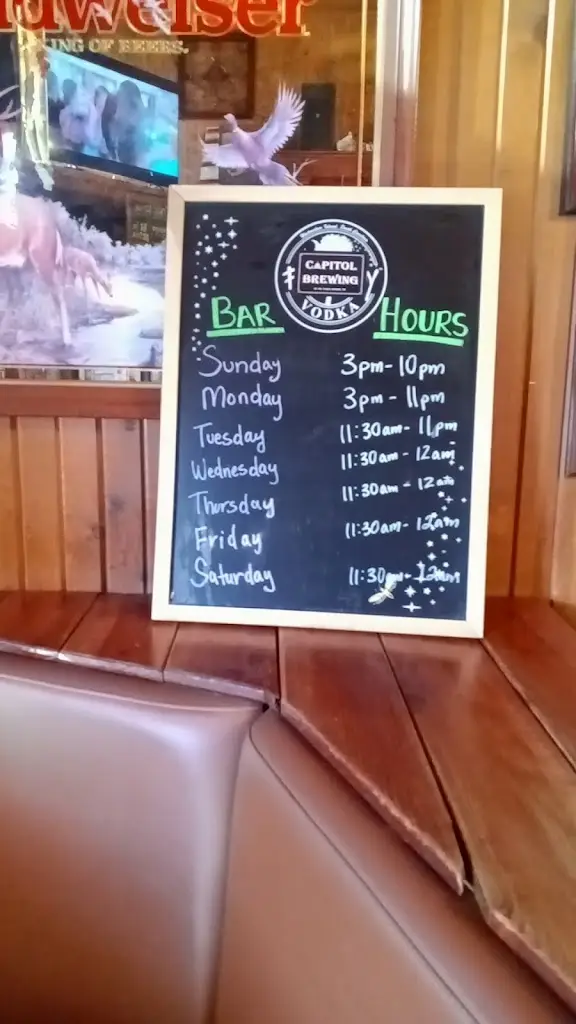 dweiser
KING OF BEERS.
CAPITOL
BREWING
VODKA
BAR HOURS
Sunday 3pm-10pm
Monday 3pm-11pm
Tuesday 11:30am-11pm
Wednesday 11:30am-12am
Thursday 11:30am-12am
Friday 11:30am-12am
Saturday 11:30am-12am